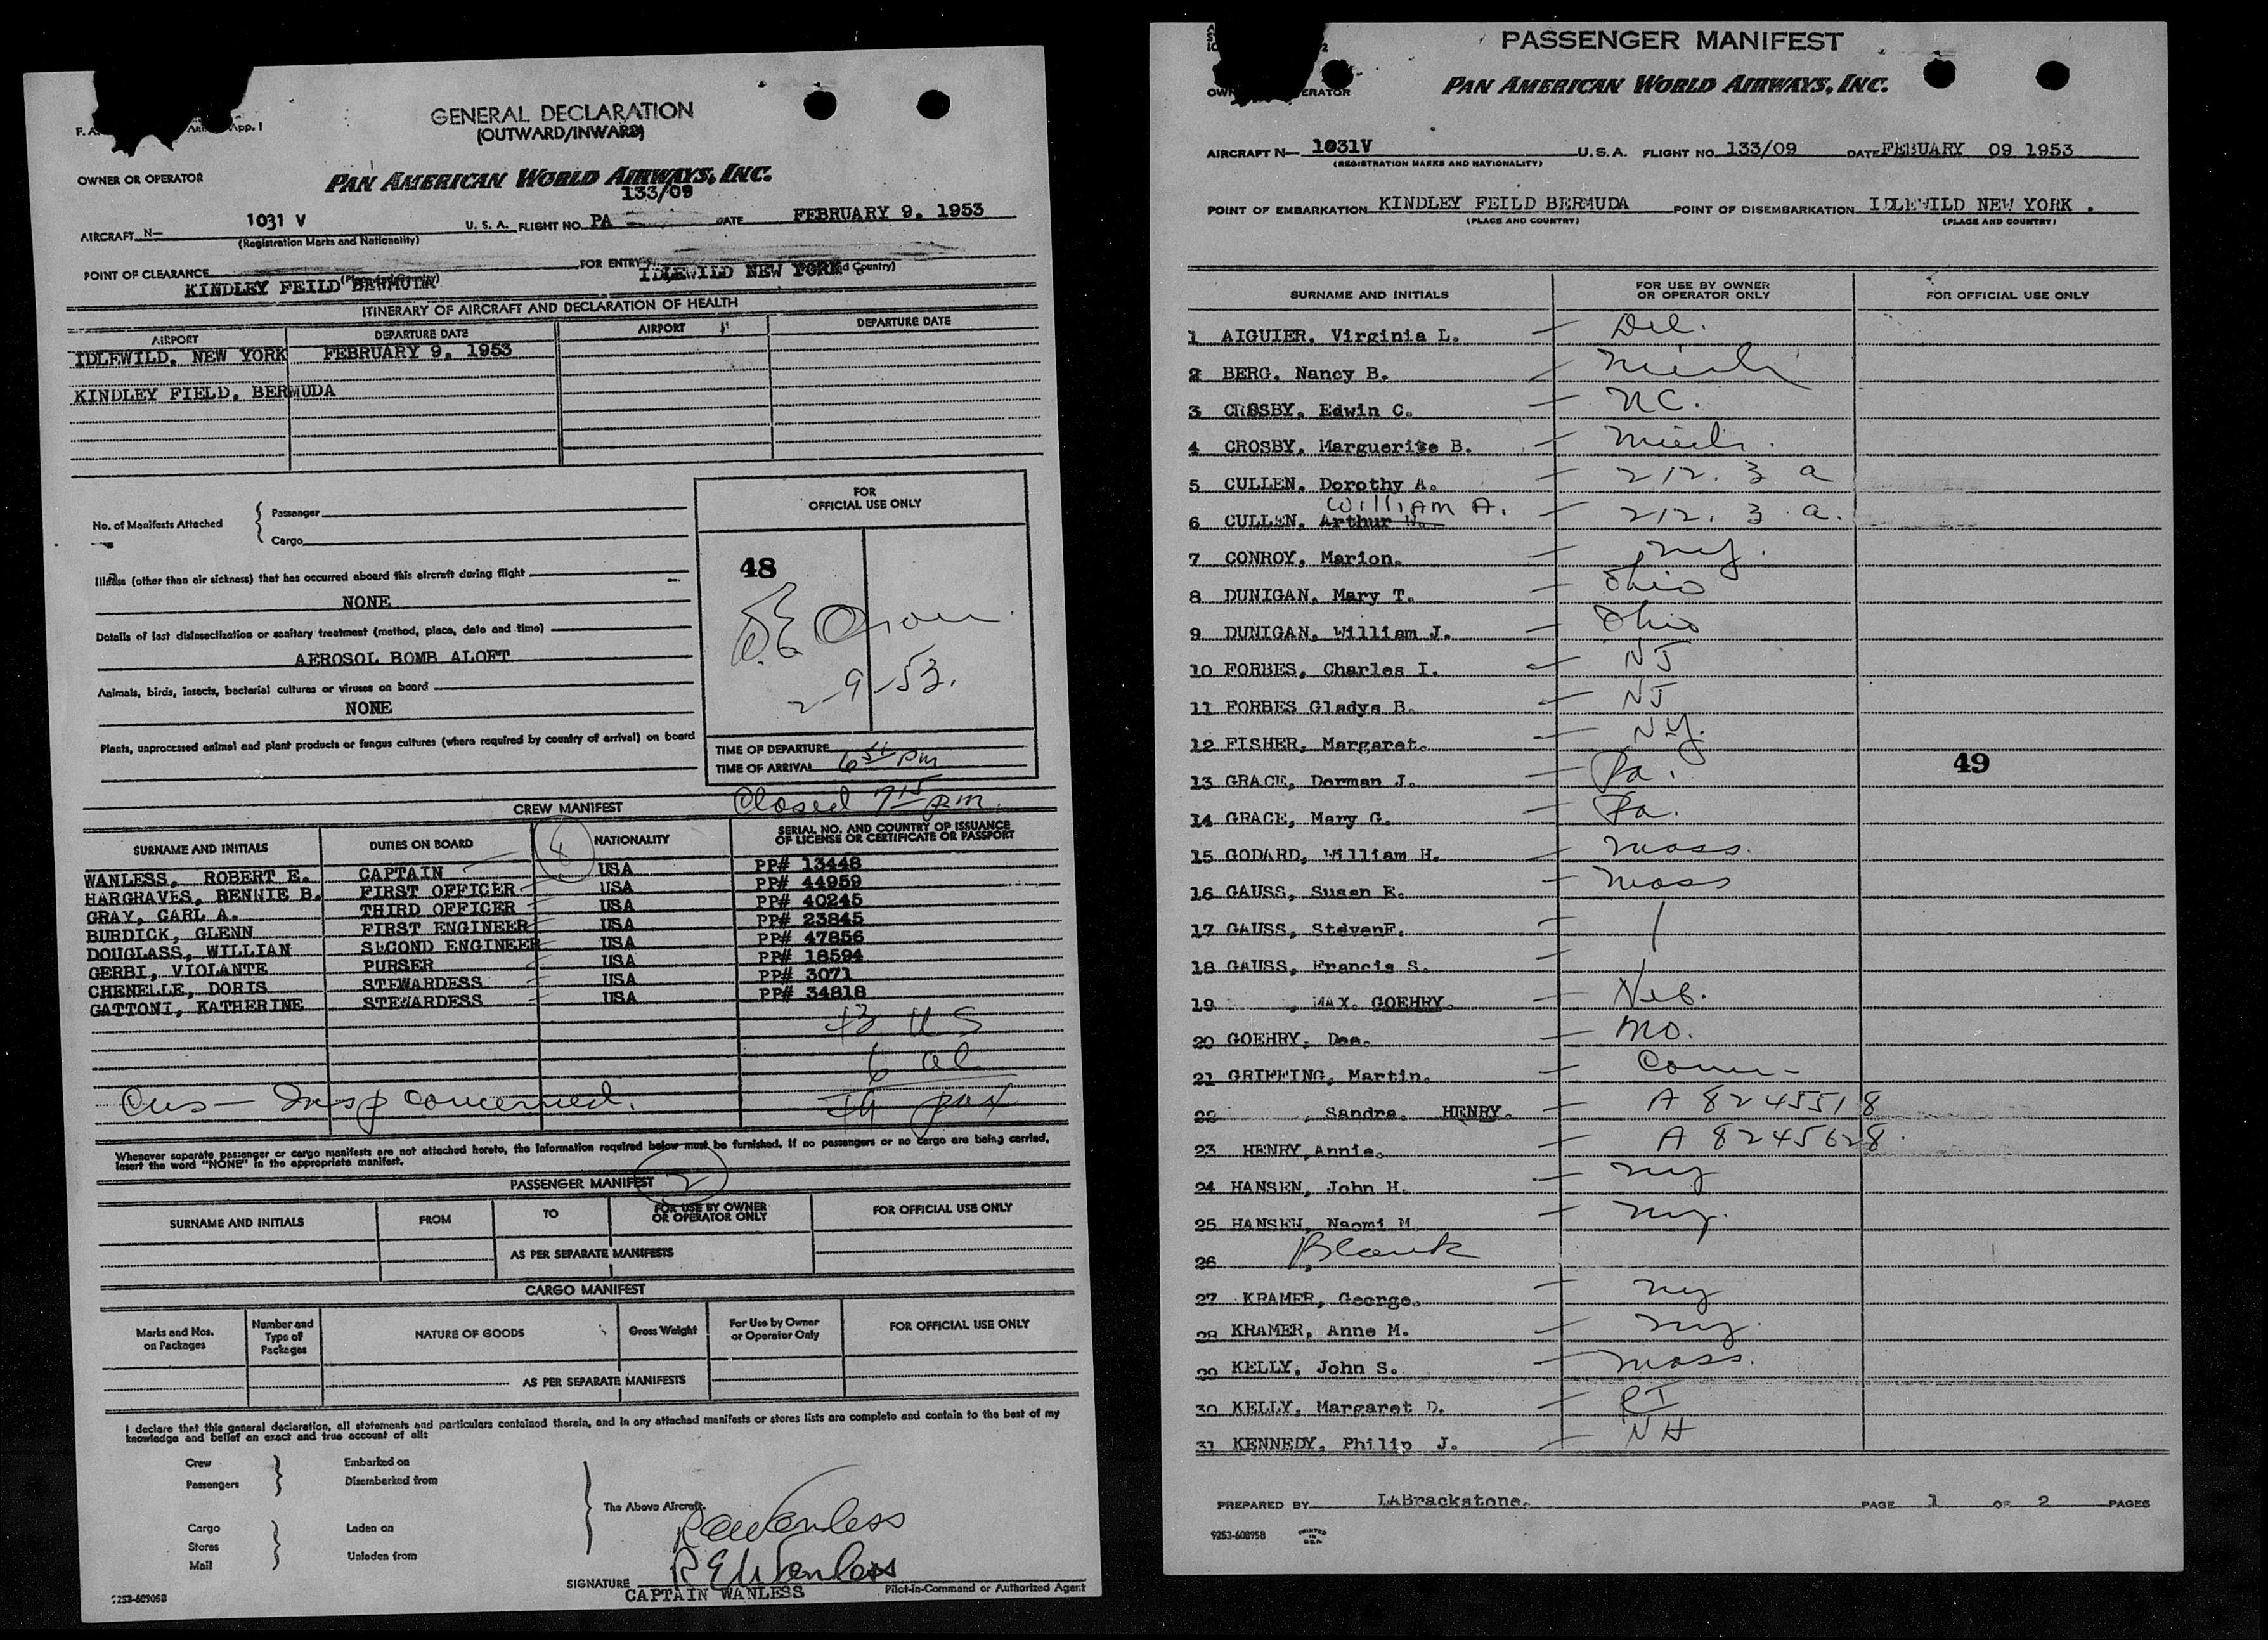 App. 1
GENERAL DECLARATION
(OUTWARD/INWARD)
OWNER OR OPERATOR
PAN AMERICAN WORLD AIRWAYS, INC.
133/09
AIRCRAFT N- 1031 V U. S. A. FLIGHT NO. PA DATE FEBRUARY 9. 1953
(Registration Marks and Nationality)
POINT OF CLEARANCE FOR ENTRY
KINDLEY FEILD BERMUDA IDLEWILD NEW YORK
ITINERARY OF AIRCRAFT AND DECLARATION OF HEALTH
AIRPORT DEPARTURE DATE AIRPORT DEPARTURE DATE
IDLEWILD. NEW YORK FEBRUARY 9. 1953
KINDLEY FIELD. BERMUDA
No. of Manifests Attached
Passenger
Cargo
FOR
OFFICIAL USE ONLY
48
2-9-53.
Illness (other than air sickness) that has occurred aboard this aircraft during flight
NONE
Details of last disinsectization or sanitary treatment (method, place, date and time)
AEROSOL BOMB ALOFT
Animals, birds, insects, bacterial cultures or viruses on board
NONE
Plants, unprocessed animal and plant products or fungus cultures (where required by country of arrival) on board
TIME OF DEPARTURE
TIME OF ARRIVAL pm
Closed 7 15 pm.
CREW MANIFEST
SURNAME AND INITIALS DUTIES ON BOARD NATIONALITY SERIAL NO. AND COUNTRY OF ISSUANCE
OF LICENSE OR CERTIFICATE OR PASSPORT
WANLESS, ROBERT E. CAPTAIN USA PP# 13448
HARGRAVES, BENNIE B. FIRST OFFICER USA PP# 44959
GRAY, CARL A. THIRD OFFICER USA PP# 40245
BURDICK, GLENN FIRST ENGINEER USA PP# 23845
DOUGLASS, WILLIAN SECOND ENGINEER USA PP# 47856
GERBI, VIOLANTE PURSER USA PP# 18594
CHENELLE, DORIS STEWARDESS USA PP# 3071
GATTONI, KATHERINE STEWARDESS USA PP# 34818
43 US
6 al
49 pax
Cus - Insp concerned.
Whenever separate passenger or cargo manifests are not attached hereto, the information required below must be furnished. If no passengers or no cargo are being carried,
insert the word "NONE" in the appropriate manifest.
PASSENGER MANIFEST 2
SURNAME AND INITIALS FROM TO FOR USE BY OWNER
OR OPERATOR ONLY FOR OFFICIAL USE ONLY
AS PER SEPARATE MANIFESTS
CARGO MANIFEST
Marks and Nos.
on Packages
Number and
Type of
Packages
NATURE OF GOODS Gross Weight
For Use by Owner
or Operator Only
FOR OFFICIAL USE ONLY
AS PER SEPARATE MANIFESTS
I declare that this general declaration, all statements and particulars contained therein, and in any attached manifests or stores lists are complete and contain to the best of my
knowledge and belief an exact and true account of all:
Crew Embarked on
Passengers Disembarked from
The Above Aircraft.
Cargo Laden on
Stores
Mail Unladen from
R E Wanless
SIGNATURE R E Wanless
CAPTAIN WANLESS Pilot-in-Command or Authorized Agent
PASSENGER MANIFEST
PAN AMERICAN WORLD AIRWAYS, INC.
AIRCRAFT N- 1031V U.S.A. FLIGHT NO. 133/09 DATE FEBUARY 09 1953
(REGISTRATION MARKS AND NATIONALITY)
POINT OF EMBARKATION KINDLEY FEILD BERMUDA POINT OF DISEMBARKATION IDLEWILD NEW YORK .
(PLACE AND COUNTRY) (PLACE AND COUNTRY)
SURNAME AND INITIALS FOR USE BY OWNER
OR OPERATOR ONLY FOR OFFICIAL USE ONLY
1 AIGUIER, Virginia L. Del.
2 BERG. Nancy B. Mich
3 CROSBY, Edwin C. NC.
4 CROSBY, Marguerite B. Mich.
5 CULLEN, Dorothy A. 212. 3 a
William A.
6 CULLEN, Arthur W. 212. 3 a.
7 CONROY, Marion. NY.
8 DUNIGAN, Mary T. Ohio
9 DUNIGAN, William J. Ohio
10 FORBES, Charles I. NJ
11 FORBES Gladys B. NJ
12 FISHER, Margaret. NY.
13 GRACE, Dorman J. Pa. 49
14 GRACE, Mary G. Pa.
15 GODARD, William H. Mass.
16 GAUSS, Susan E. Mass
17 GAUSS, StevenF.
18 GAUSS, Francis S.
19 , MAX. GOEHRY. Neb.
20 GOEHRY, Dee. MO.
21 GRIFFING, Martin. Conn-
22 , Sandra. HENRY. A 8245518
23 HENRY,Annie. A 8245628.
24 HANSEN, John H. NY
25 HANSEN, Naomi M. NY.
26 Blank
27 KRAMER, George. NY
28 KRAMER, Anne M. NY.
29 KELLY, John S. Mass.
30 KELLY, Margaret D. RI
31 KENNEDY, Philip J. NH
PREPARED BY LABrackstone. PAGE 1 OF 2 PAGES
9253-60895B PRINTED
IN
U.S.A.